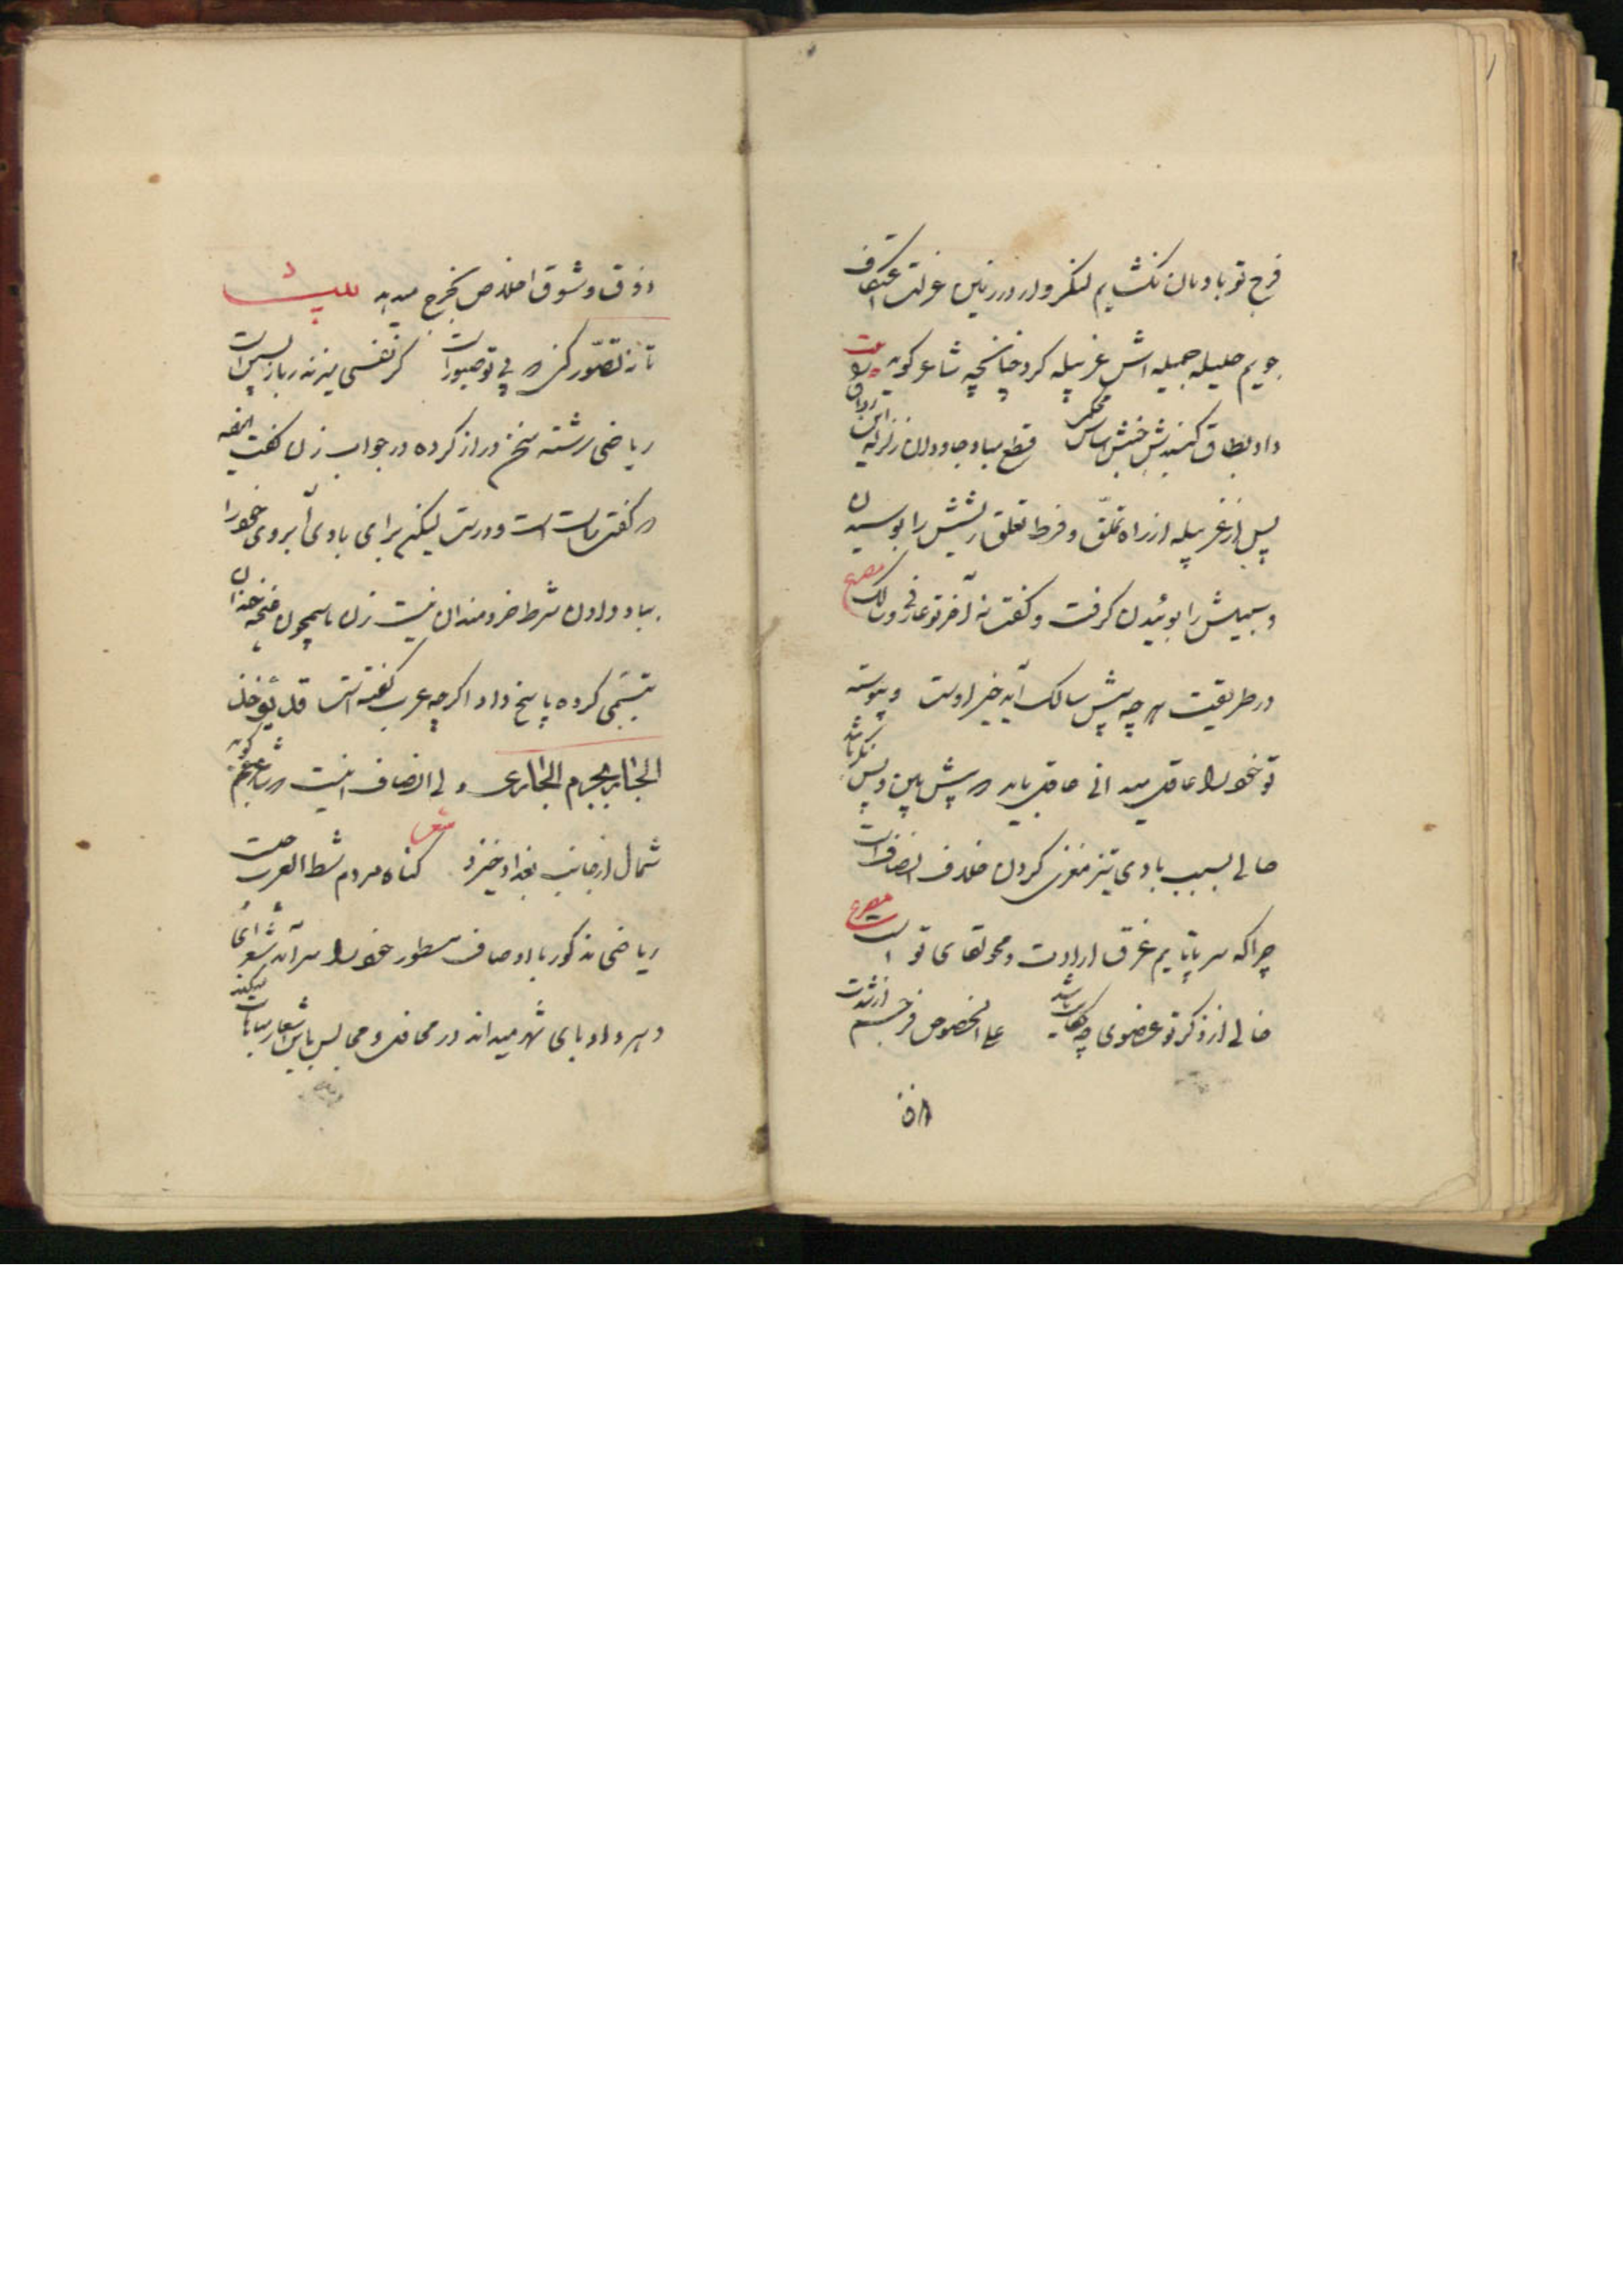 فرج تو بادبان نکشایم لنکر ولدر در زمین عزلت اعتکاف
جویم حلیله جمیله اش غربیله کرد چنانچه شاعر کوید بیت
داد بطاق کنبدش جنبش ساس محکم قطع مباد جاودان زلزله این رواق
پس از غربیله از راه تملق و فرط تعلق ریشش را بوسیدن
و سبیلش را بوئیدن کرفت و کفت نه آخر تو عارفی و سالک مصرع
در طریقت هر چه پیش سالک آید خیر اوست و پیوسته
تو خود را عاقل میدانی عاقل باید که پیش بین و پس نکر باشد
حالی بسبب بادی تیز مغزی کردن خلاف انصاف است
چرا که سر تا پایم غرق ارادت و محو لقای تو است مصرع
خالی از ذکر تو عضوی چه حکایت باشد علی الخصوص فرجم از شدت
که از
ذوق و شوق اخلاص بخرج میدهد بیت
تا نه تصور کنی که بی تو صبور است کر نفسی میزند ز باز پسین است
ریاضی رشته سخن دراز کرده در جواب زن کفت آنچه
که کفتی راست است و درست لیکن برای بادی آبروی خود را
بباد دادن شرط خردمندان نیست زن باسم چون غنچه خندان
تبسمی کرده پاسخ داد اکرچه عرب کفته است قد یؤخذ
الجار بجرم الجار ولی انصاف نیست که شاعر عجم کوید
شعر
شمال از جانب بغداد خیزد کناه مردم شط العرب چیست
ریاضی مذکور با اوصاف مسطور خود را سر آمد شعرای
دهر و ادبای شهر میداند در محافل و مجالس باین اشعار مباهات میکند